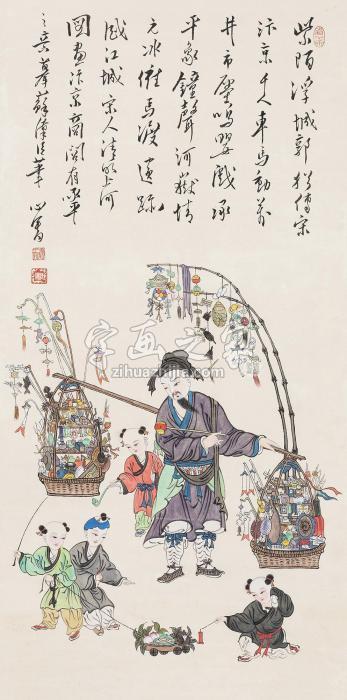 紫陌浮城郭猶傳宋
汴京千人車馬動萬
井市聲鳴嬰戲承
平象鐘聲河嶽情
冰催馬渡遺跡
感江城宋人清明上河
圖畫汴京有
摹蘇漢臣筆 心畬
字画之家
zihuazhijia.com